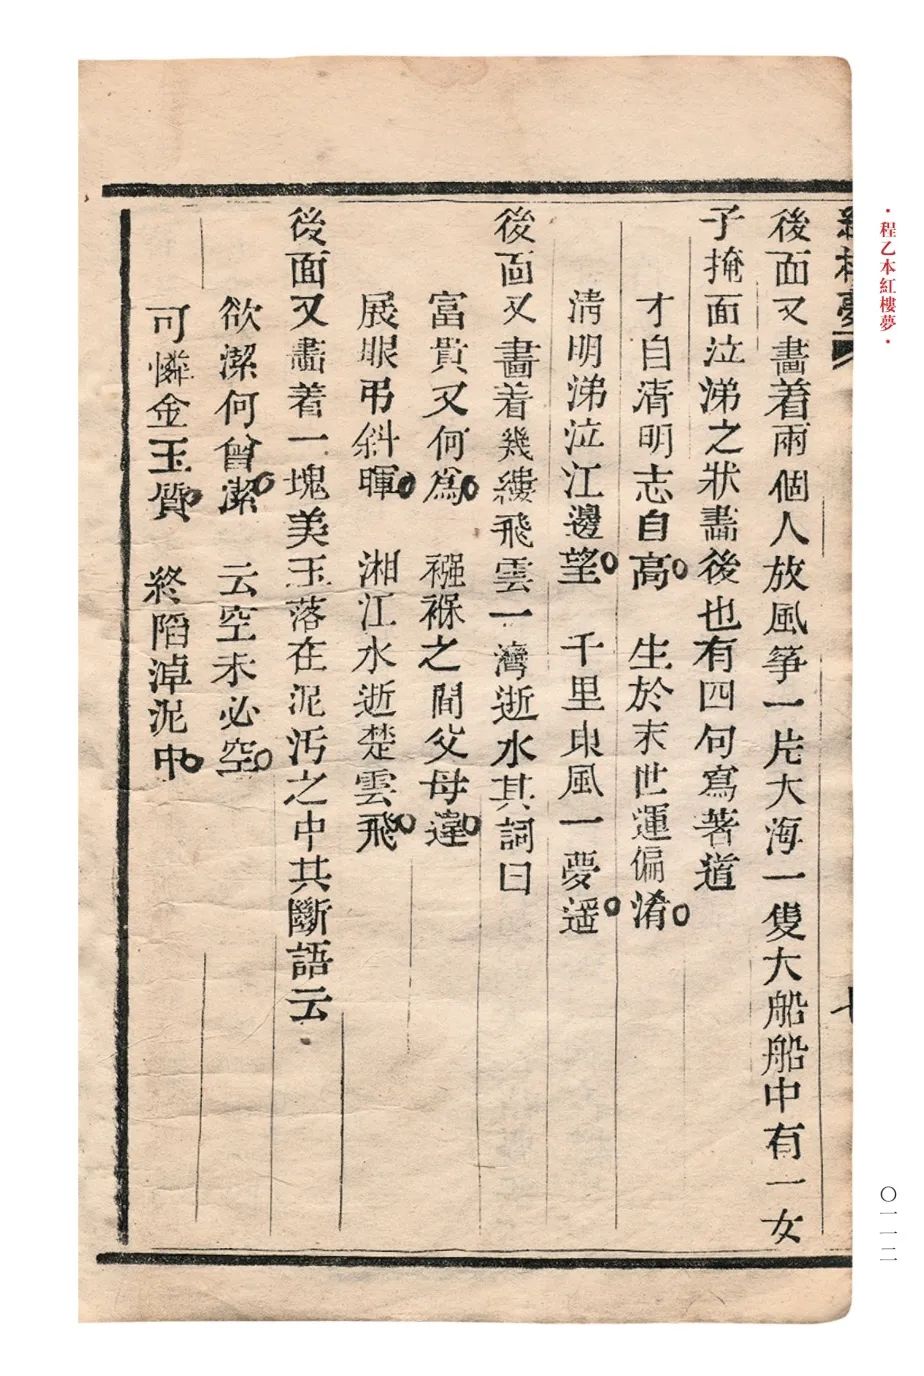 ·程乙本紅樓夢·
後面又畵着兩個人放風筝一片大海一隻大船船中有一女
子掩面泣涕之狀畵後也有四句寫著道
才自清明志自高　生於末世運偏淆
清明涕泣江邊望　千里東風一夢遥
後面又畵着幾縷飛雲一灣逝水其詞曰
富貴又何爲　襁褓之間父母違
展眼弔斜暉　湘江水逝楚雲飛
後面又畵着一塊美玉落在泥污之中其斷語云
欲潔何曾潔　云空未必空
可憐金玉質　終陷淖泥中
〇一一二